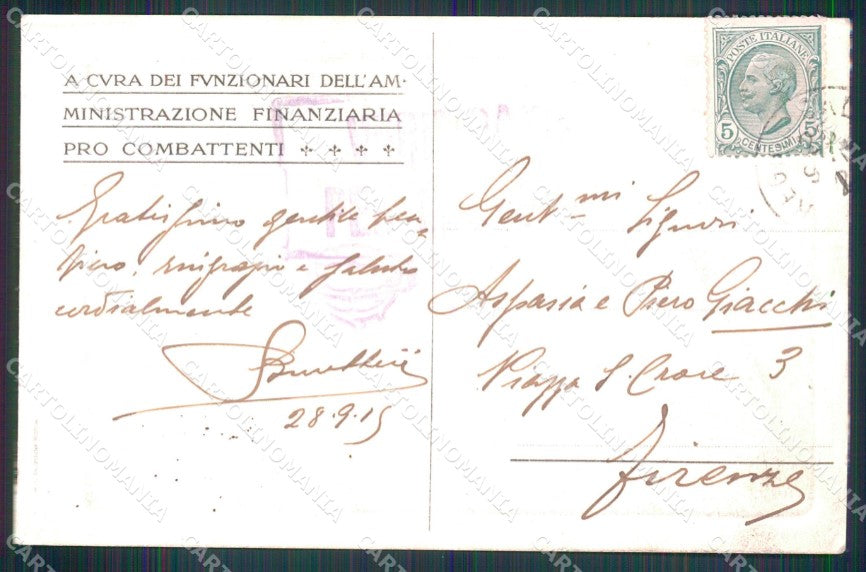 A CVRA DEI FVNZIONARI DELL'AM·
MINISTRAZIONE FINANZIARIA
PRO COMBATTENTI
Gratissimo gentile pen-
siero, ringrazio e saluto
cordialmente
28.9.15
POSTE ITALIANE
5 5
CENTESIMI
Gent-mi Signori
Aspasia e Piero Giacchi
Piazza S. Croce 3
Firenze
CARTOLINOMANIA